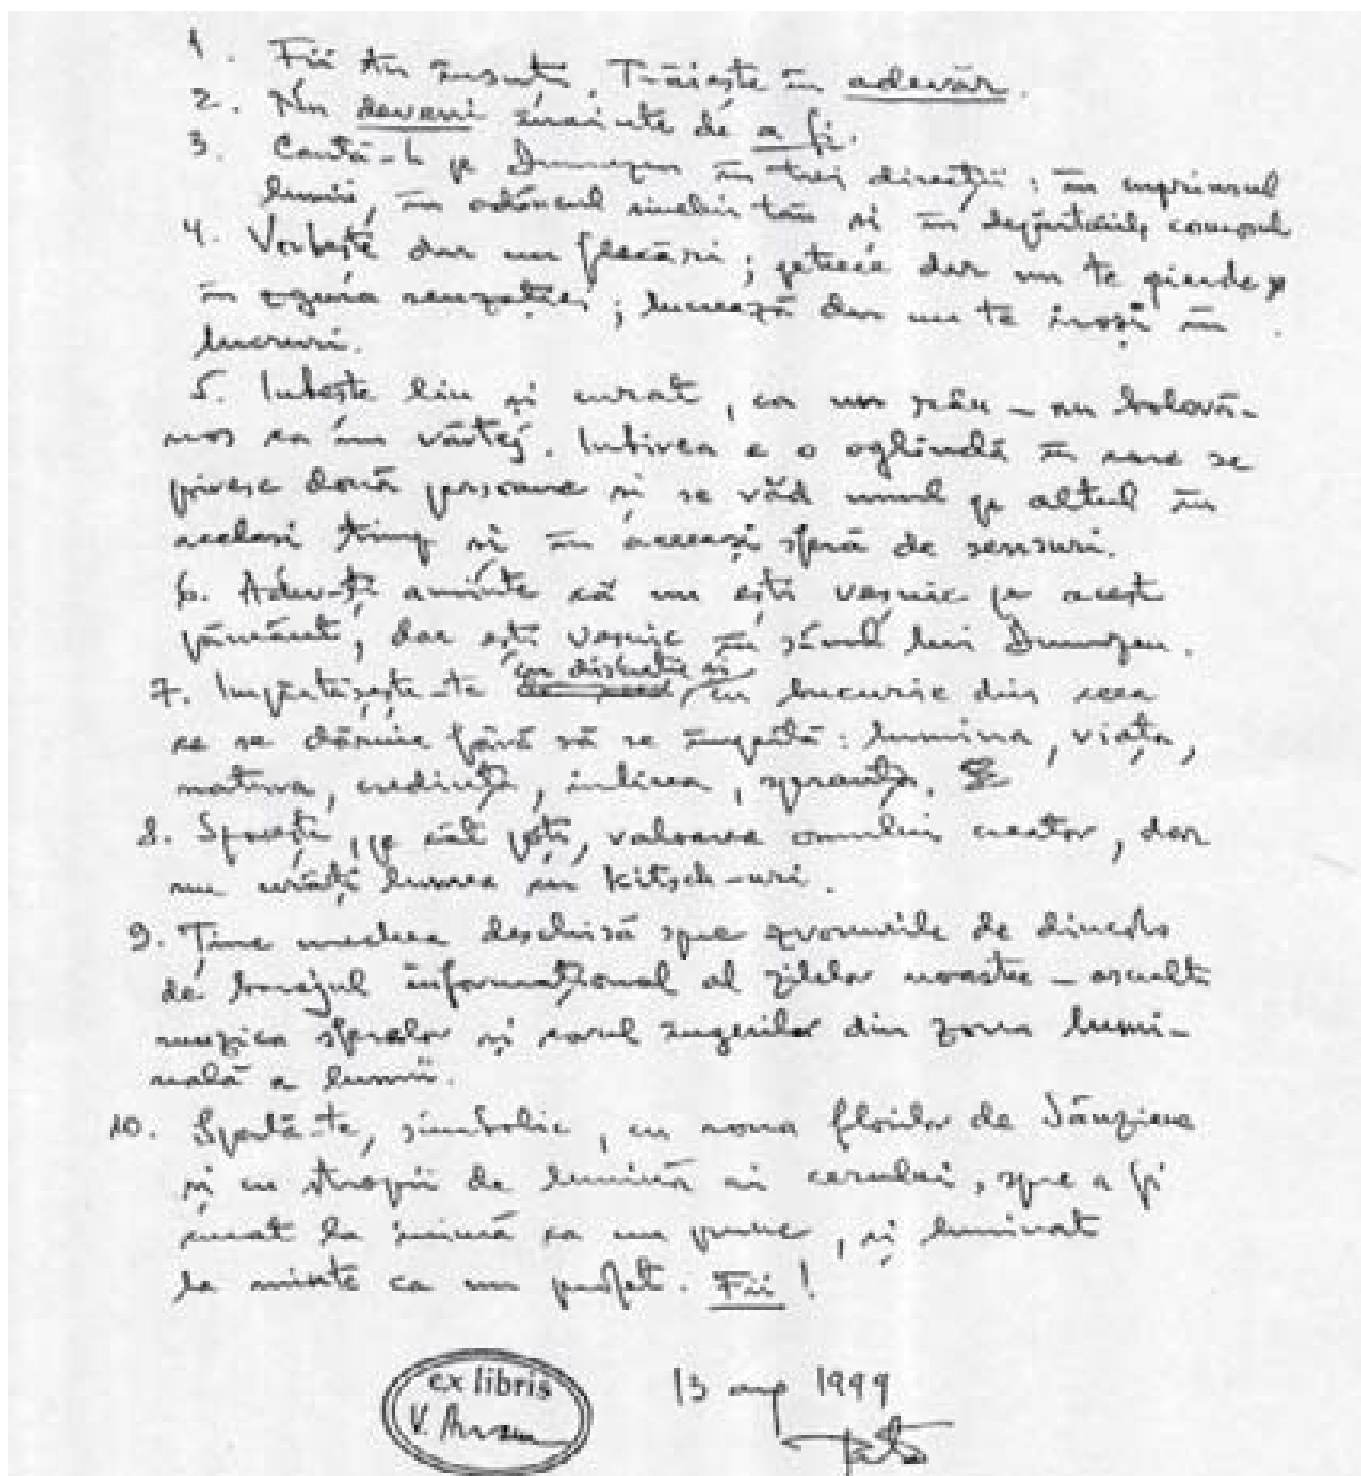 1. Fii tu însuți. Trăiește în adevăr.
2. Nu deveni înainte de a fi.
3. Caută-L pe Dumnezeu în trei direcții: în cuprinsul
lumii, în adâncul sinelui tău și în depărtările cosmosul
4. Vorbește dar nu flecări; petrece dar nu te pierde pe
în zgura senzației; lucrează dar nu te irosi în
lucruri.
5. Iubește lin și curat, ca un râu – nu bolovă-
nos ca un vârtej. Iubirea e o oglindă în care se
privesc două persoane și se văd unul pe altul în
același timp și în aceeași sferă de sensuri.
6. Adu-ți aminte că nu ești veșnic pe acest
pământ, dar ești veșnic în sânul lui Dumnezeu.
cu discreție și
7. Împărtășește-te cu bucurie din ceea
ce se dăruie fără să se împuțină: lumina, viața,
natura, credința, iubirea, speranța.
8. Sporește, pe cât poți, valoarea omului creator, dar
nu urâți lumea cu kitsch-uri.
9. Ține urechea deschisă spre zvonurile de dincolo
de barajul informațional al zilelor noastre – ascultă
muzica sferelor și corul îngerilor din zona lumi-
nală a lumii.
10. Spală-te, simbolic, cu roua florilor de Sânziene
și cu stropii de lumină ai cerului, spre a fi
curat la inimă ca un prunc, și luminat
la minte ca un profet. Fii!
ex libris
V. Avram
13 aug 1999